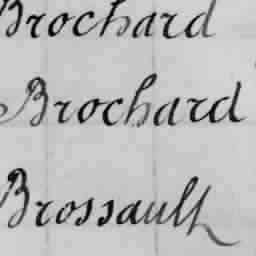 Brochard
Brochard
Brossault